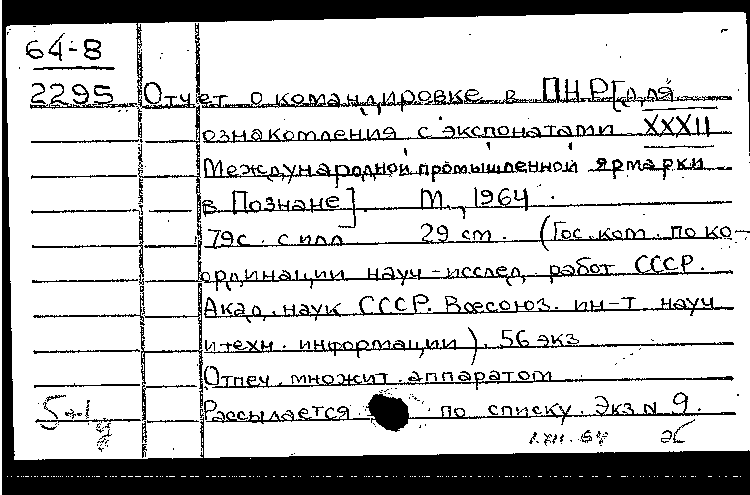 64-8
2295 Отчет о командировке в ПНР [для
ознакомления с экспонатами XXXII
Международной промышленной ярмарки
в Познане]. М., 1964.
79с. с илл 29 см. (Гос. ком. по ко-
ординации науч-исслед. работ СССР.
Акад. наук СССР. Всесоюз. ин-т науч
и техн. информации). 56 экз
Отпеч. множит. аппаратом
Рассылается по списку. Экз N 9.
1.XII.64